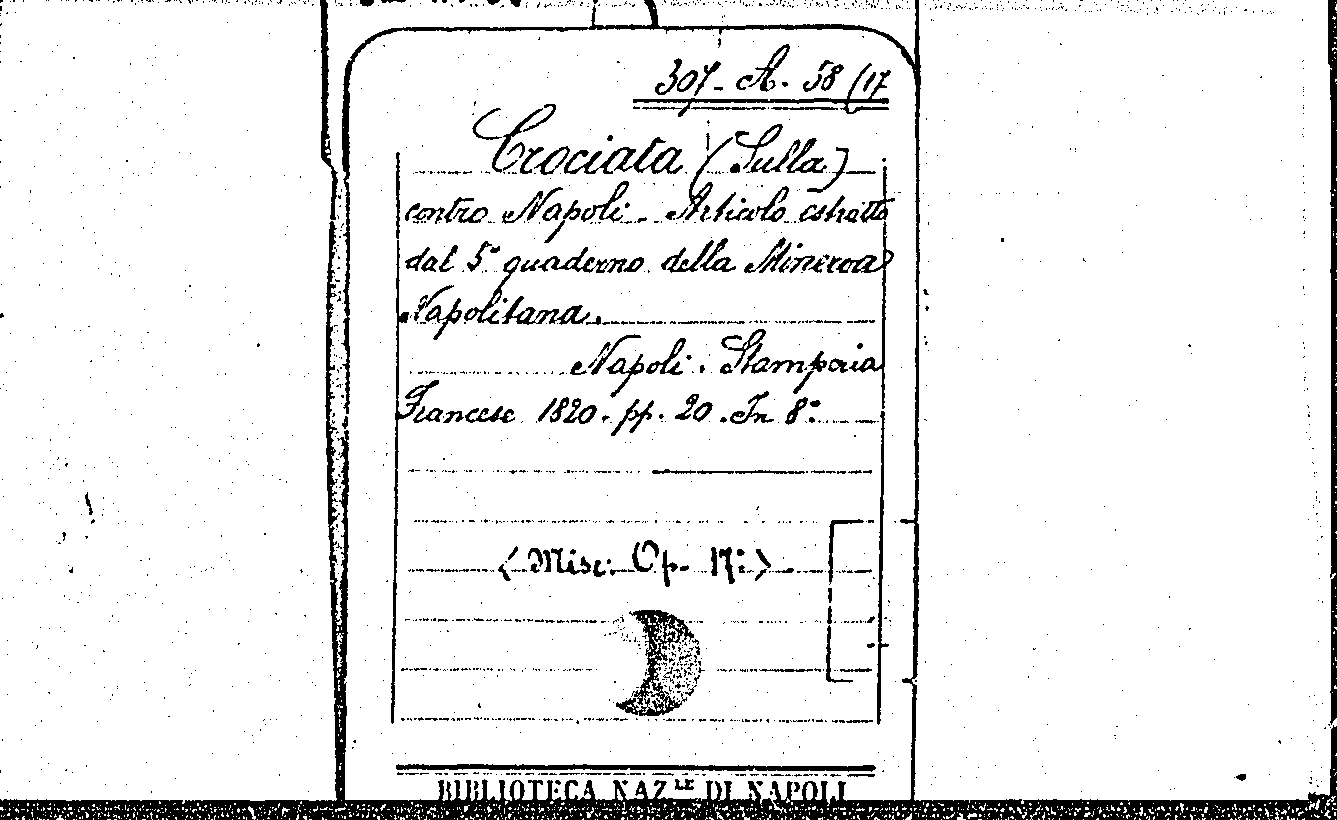 307-A. 58 (17
Crociata (Sulla)
contro Napoli. Articolo estratto
dal 5° quaderno della Minerva
Napolitana.
Napoli. Stamperia
Francese 1820. pp. 20. In 8°.
(Misc: Op. 17:)
BIBLIOTECA NAZ.LE DI NAPOLI